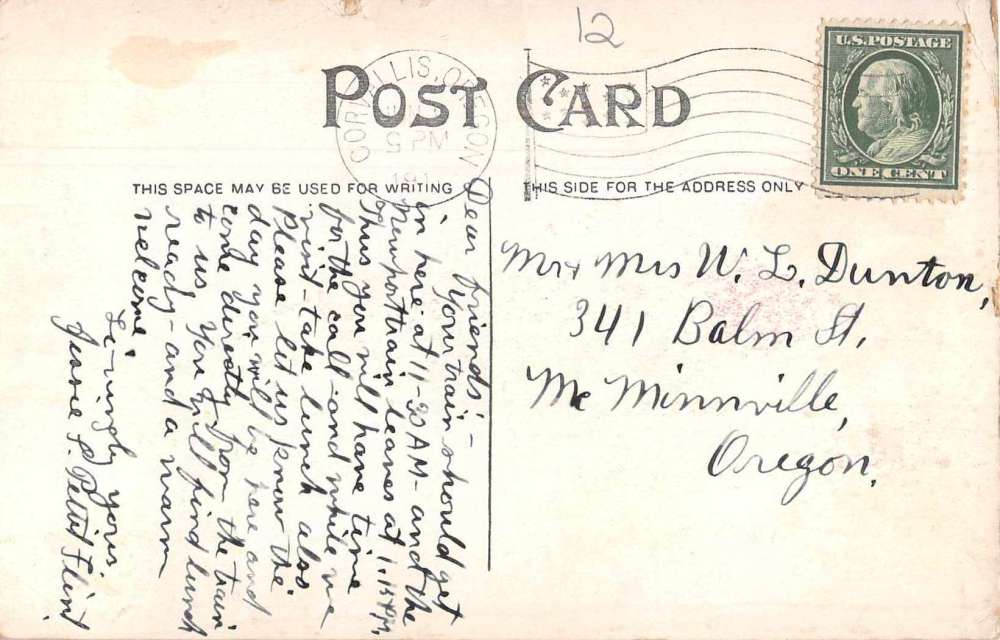 12
POST CARD
CORVALLIS, OREGON
5 PM
191
U.S. POSTAGE
ONE CENT
THIS SPACE MAY BE USED FOR WRITING
THIS SIDE FOR THE ADDRESS ONLY
Dear friends:-
Your train should get
in here at 11-20 AM - and the
Newport train leaves at 1.15 PM,
Thus you will have time
for the call - and while we
visit - take lunch also
Please let us know the
day you will be here and
come directly from the train
to us. You will find lunch
ready - and a warm
welcome.
Lovingly yours
Jessie S. Pettit Flint
Mr & Mrs W. L. Dunton,
341 Balm St.
Mc Minnville,
Oregon.